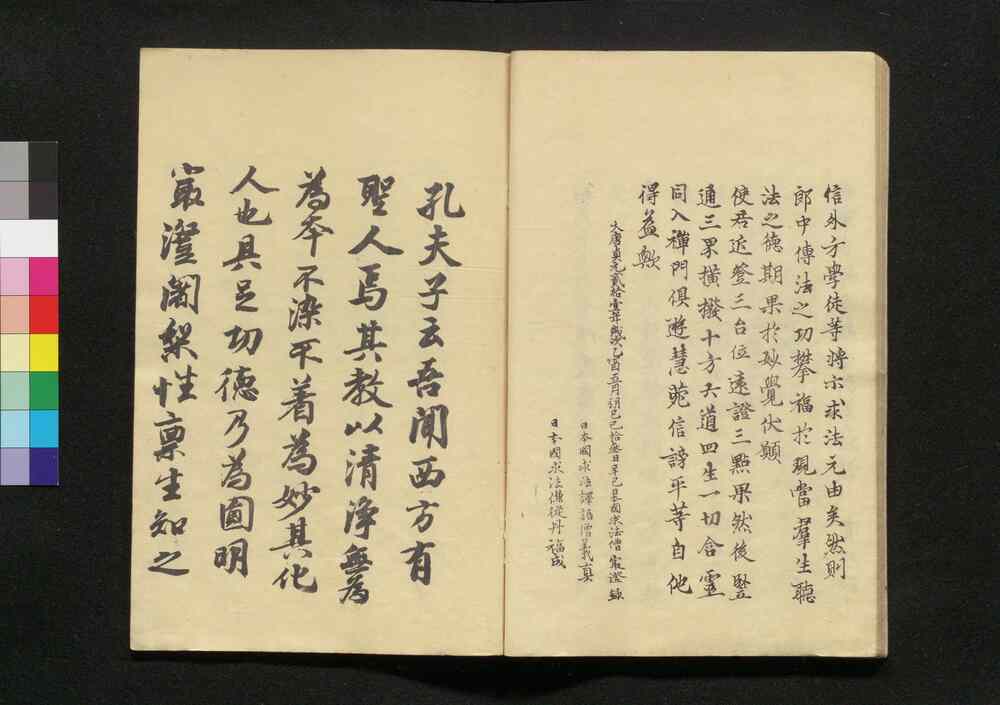 信外方學徒等將示求法元由矣然則
郎中傳法之功攀福於現當羣生聽
法之德期果於妙覺伏願
使君近登三台位遠證三點果然後竪
通三界横撥十方六道四生一切含靈
同入禪門俱遊慧菀信謗平等自他
得益歟
大唐貞元貳拾壹年歲次乙酉五月朔己巳拾叁日辛巳日本國求法僧最澄錄
日本國求法譯語僧義真
日本國求法傔從丹福成
孔夫子云吾聞西方有
聖人焉其教以清淨無為
為本不染不着為妙其化
人也具足功德乃為圓明
最澄闍梨性禀生知之